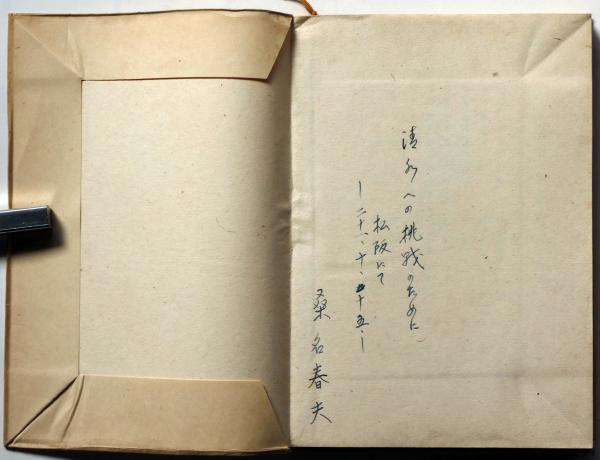 清水への挑戦のために
松阪にて
ー二十一、十、十五、ー
桑名春夫